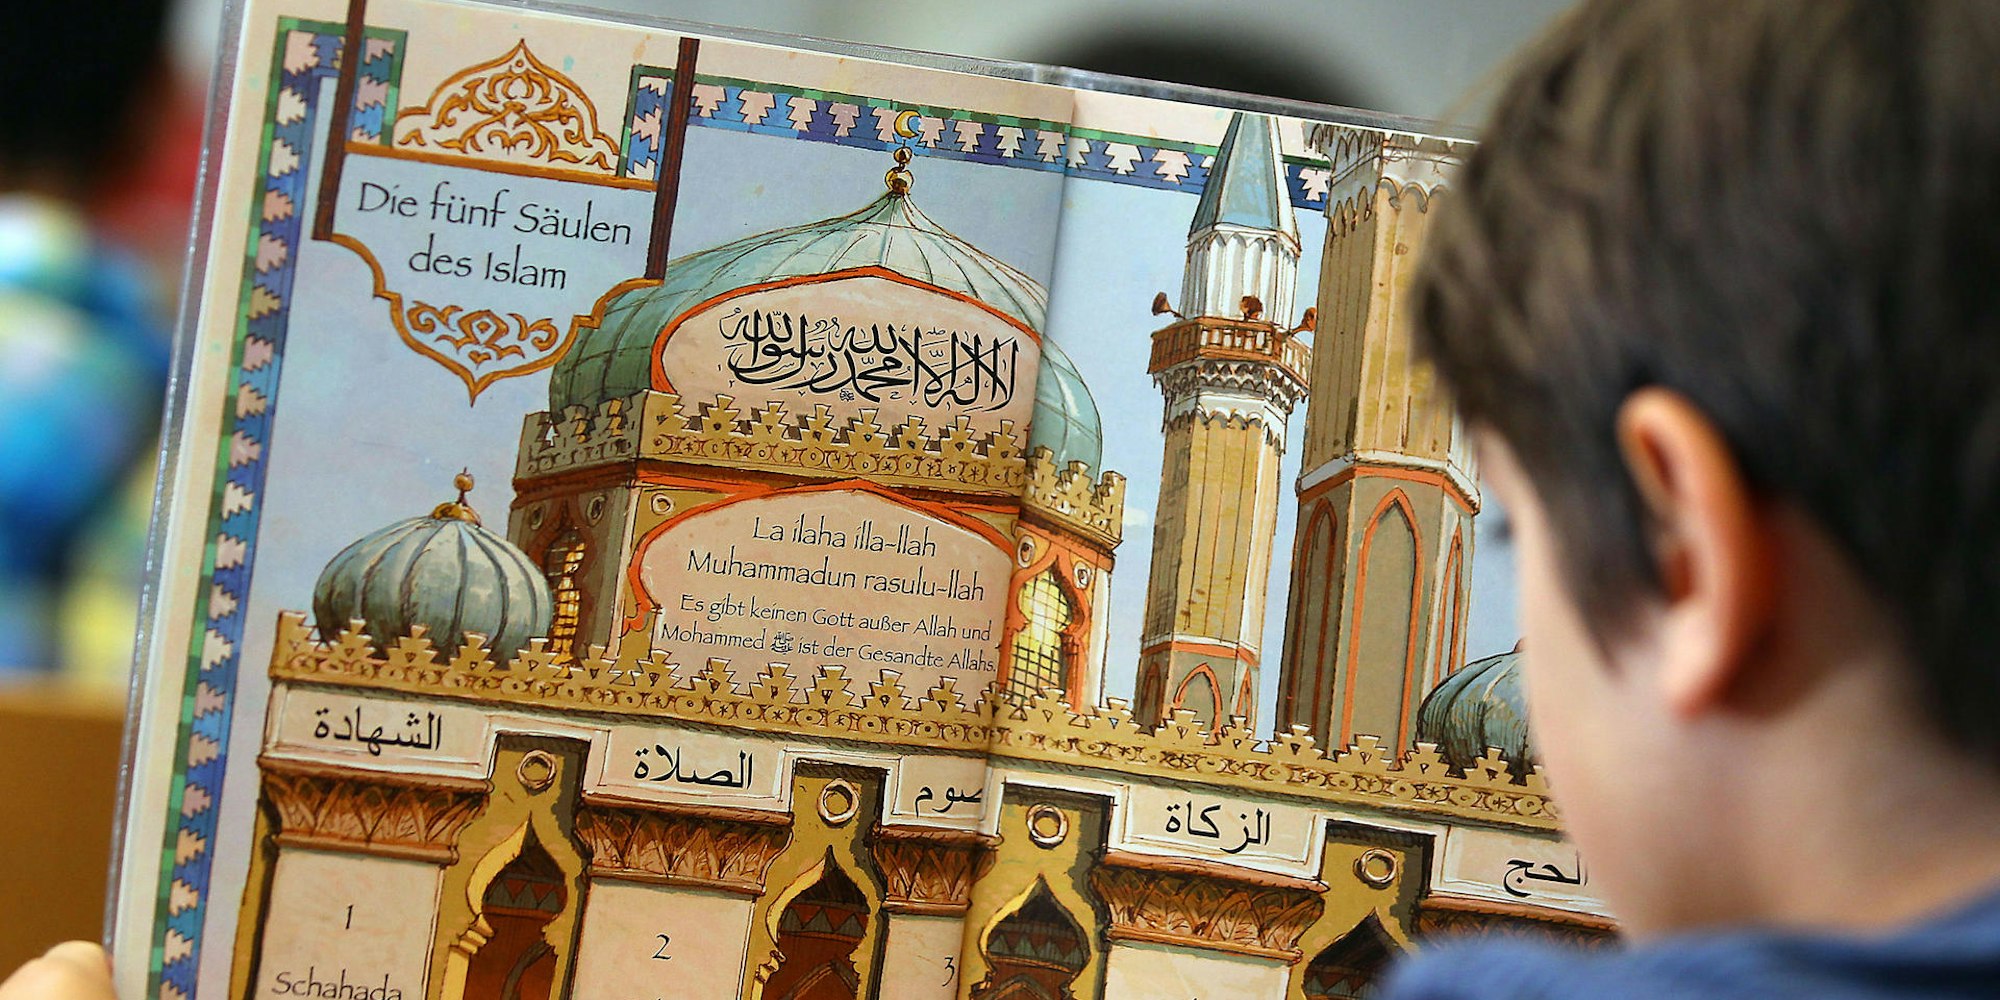 Die fünf Säulen
des Islam
لا إله إلا الله محمد رسول الله
La ilaha illa-llah
Muhammadun rasulu-llah
Es gibt keinen Gott außer Allah und
Mohammed ﷺ ist der Gesandte Allahs.
الشهادة
الصلاة
صوم
الزكاة
الحج
1
2
3
Schahada